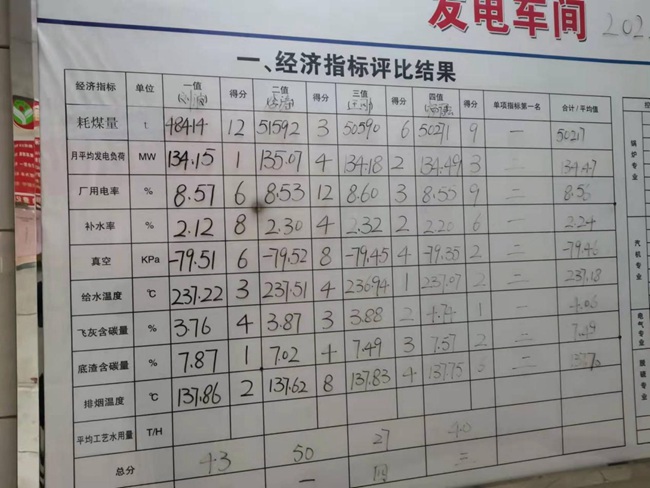 发电车间 202
一、经济指标评比结果
经济指标 单位 一值 得分 二值 得分 三值 得分 四值 得分 单项指标第一名 合计/平均值
耗煤量 t 48414 12 51592 3 50590 6 50271 9 一 50217
月平均发电负荷 MW 134.15 1 135.07 4 134.18 2 134.49 3 二 134.47
厂用电率 % 8.57 6 8.53 12 8.60 3 8.55 9 二 8.56
补水率 % 2.12 8 2.30 4 2.32 2 2.20 6 一 2.24
真空 KPa -79.51 6 -79.52 8 -79.45 4 -79.35 2 二 -79.46
给水温度 ℃ 237.22 3 237.51 4 236.94 1 237.07 2 二 237.18
飞灰含碳量 % 3.76 4 3.87 3 3.88 2 4.74 1 一 4.06
底渣含碳量 % 7.87 1 7.02 4 7.49 3 7.57 2 二 7.49
排烟温度 ℃ 137.86 2 137.62 8 137.83 4 137.75 6 二
平均工艺水用量 T/H
总分 43 50 27 40
一 四 三
锅炉专业
汽机专业
电气专业